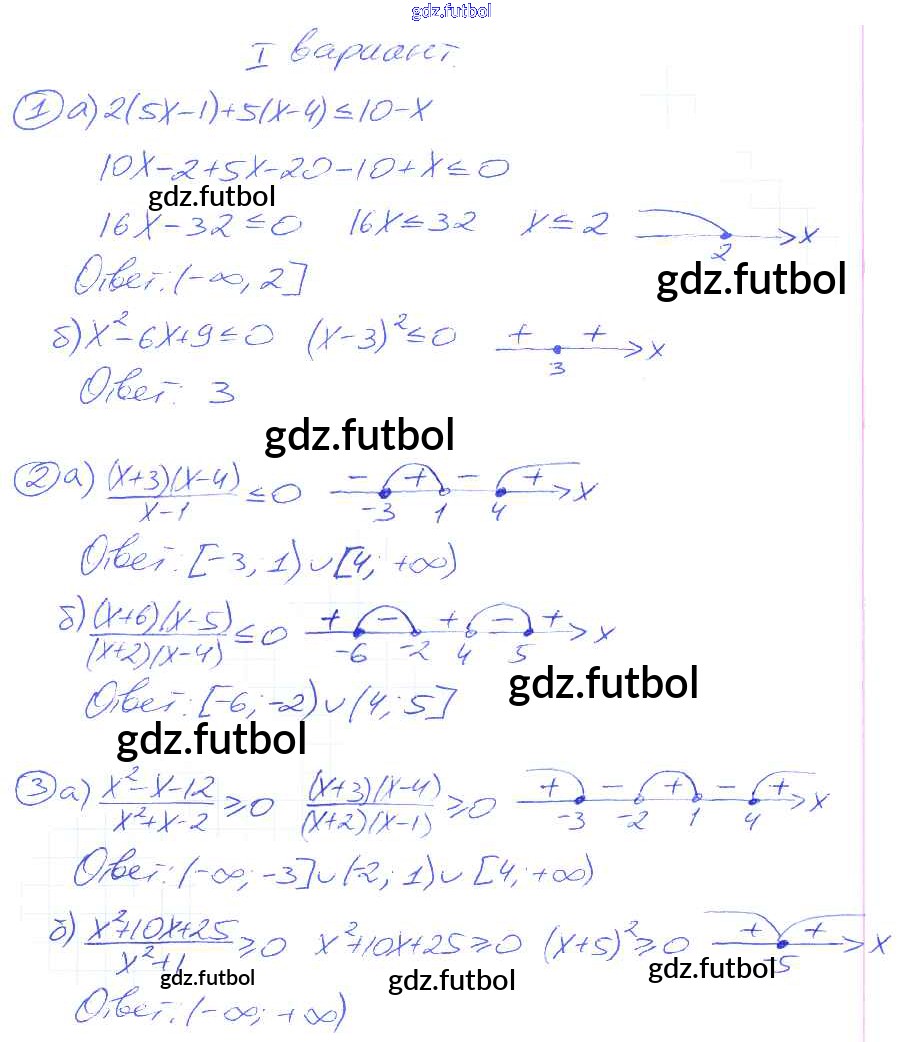 gdz.futbol
I вариант.
① а) 2(5x-1)+5(x-4)≤10-x
10x-2+5x-20-10+x≤0
gdz.futbol
16x-32≤0 16x≤32 x≤2 2 x
gdz.futbol
Ответ: (-∞, 2]
б) x²-6x+9≤0 (x-3)²≤0 + + 3 x
Ответ: 3
gdz.futbol
② а) (x+3)(x-4)/x-1 ≤0 - + - + -3 1 4 x
Ответ: [-3; 1)∪[4; +∞)
б) (x+6)(x-5)/(x+2)(x-4) ≤0 + - + - + -6 -2 4 5 x
gdz.futbol
Ответ: [-6; -2)∪(4; 5]
gdz.futbol
③ а) x²-x-12/x²+x-2 ≥0 (x+3)(x-4)/(x+2)(x-1) ≥0 + - + - + -3 -2 1 4 x
Ответ: (-∞; -3]∪(-2; 1)∪[4; +∞)
б) x²+10x+25/x²+1 ≥0 x²+10x+25≥0 (x+5)²≥0 + + -5 x
gdz.futbol gdz.futbol gdz.futbol
Ответ: (-∞; +∞)